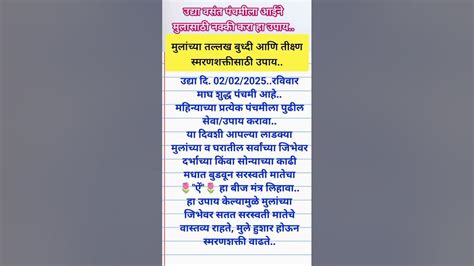 उद्या वसंत पंचमीला आईने
मुलासाठी नक्की करा हा उपाय..
मुलांच्या तल्लख बुध्दी आणि तीक्ष्ण
स्मरणशक्तीसाठी उपाय..
उद्या दि. 02/02/2025..रविवार
माघ शुद्ध पंचमी आहे..
महिन्याच्या प्रत्येक पंचमीला पुढील
सेवा/उपाय करावा..
या दिवशी आपल्या लाडक्या
मुलांच्या व घरातील सर्वांच्या जिभेवर
दर्भाच्या किंवा सोन्याच्या काढी
मधात बुडवून सरस्वती मातेचा
🌷"ऐं"🌷 हा बीज मंत्र लिहावा..
हा उपाय केल्यामुळे मुलांच्या
जिभेवर सतत सरस्वती मातेचे
वास्तव्य राहते, मुले हुशार होऊन
स्मरणशक्ती वाढते..